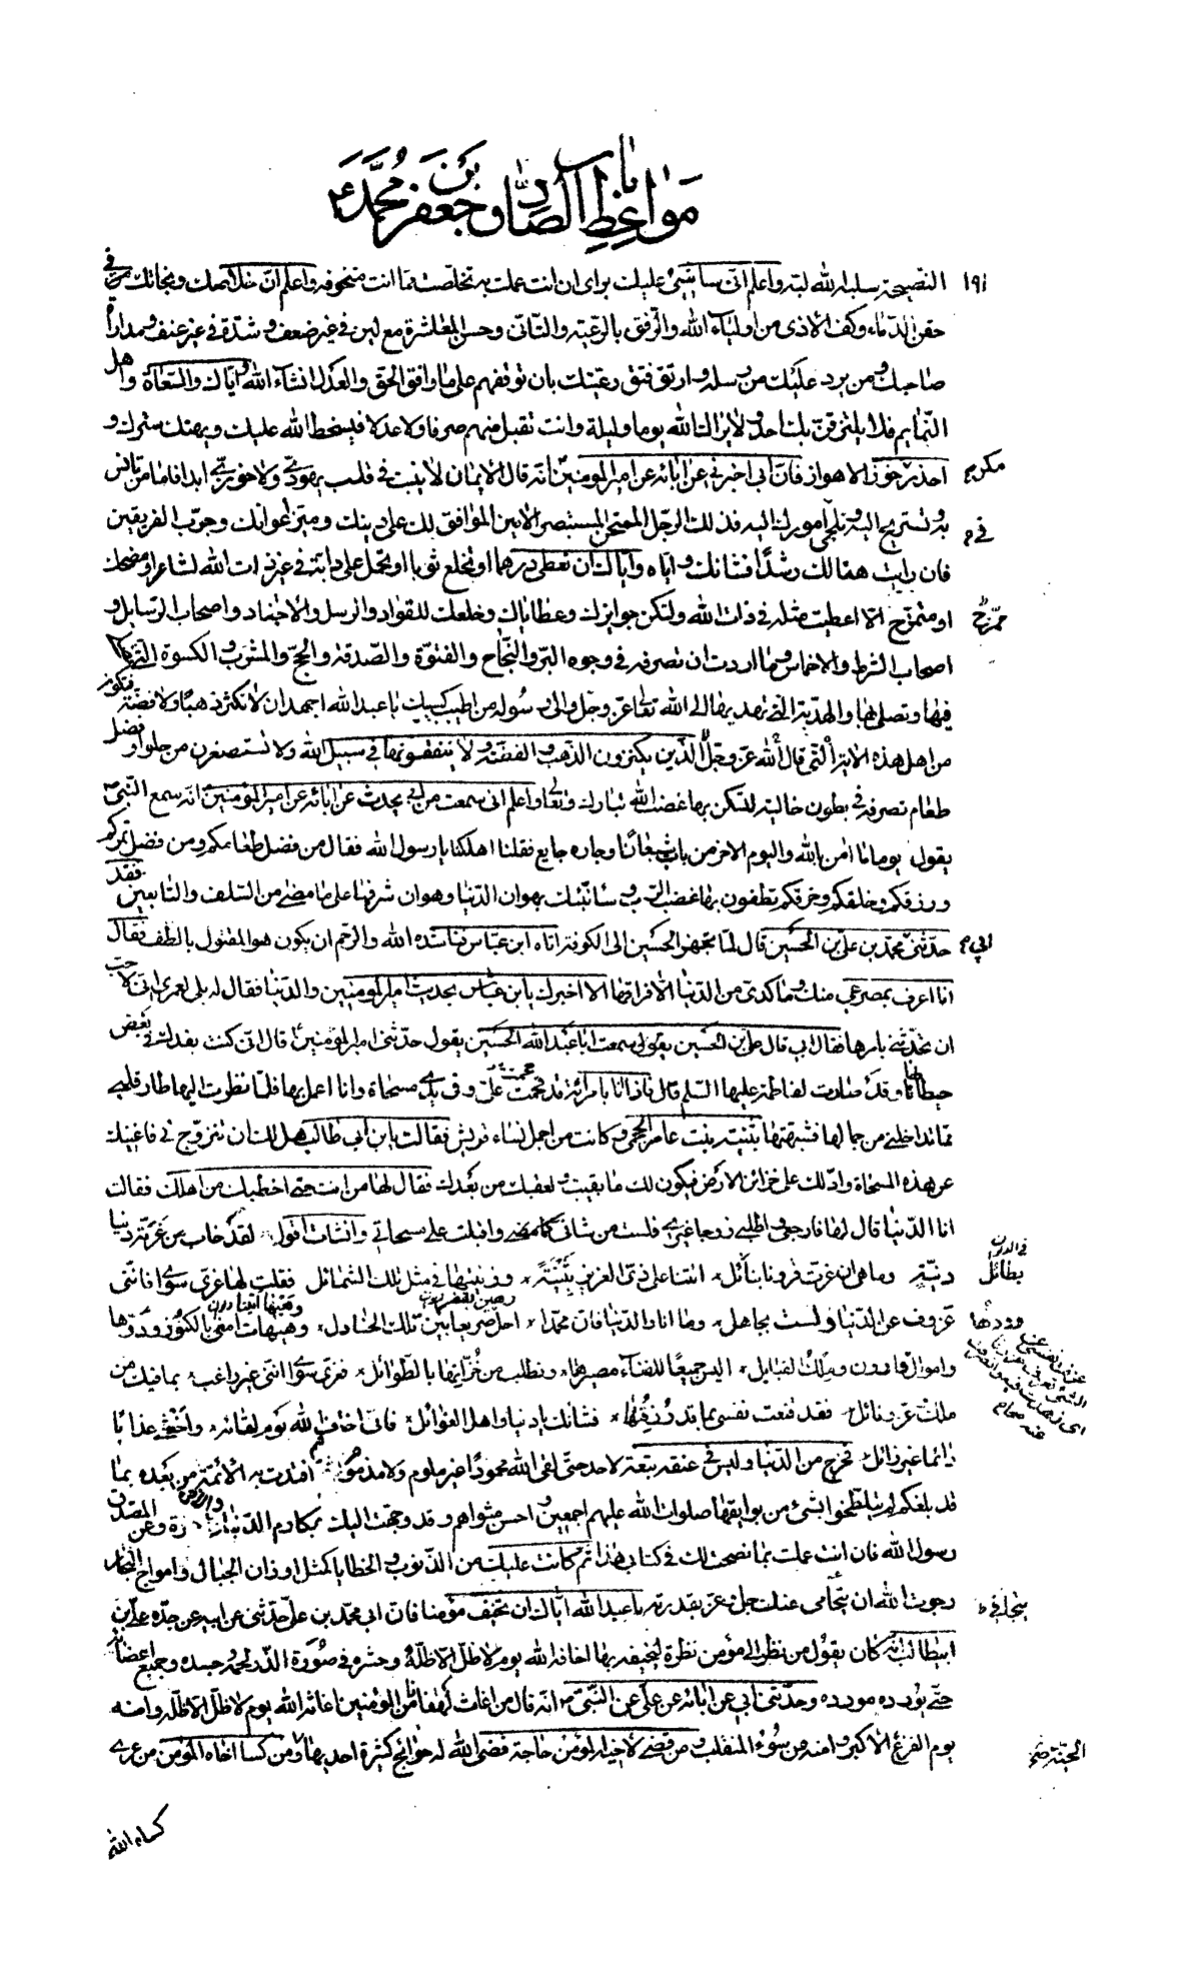 باب
مواعظ الصادق جعفر بن محمد ع
١٩١
النصيحة سلبه الله لبه واعلم انى ساشير عليك براى ان انت عملت به تخلصت مما انت متخوفه واعلم ان خلاصك ونجاتك من فى
حقن الدماء وكف الاذى من اولياء الله والرفق بالرعية والتانى وحسن المعاشرة مع لين فى غير ضعف وشدة فى غير عنف ومداراة
صاحبك ومن يرد عليك من رسله وارتق فتق رعيتك بان توقفهم على ما وافق الحق والعدل انشاء الله واياك والسعاة واهل
النمايم فلا يلتزقن بك منهم احد ولا يراك الله يوما وليلة وانت تقبل منهم صرفا ولا عدلا فيسخط الله عليك ويهتك سترك و
احذر خوز الاهواز فان ابى اخبرنى عن ابائه عن امير المومنين ع انه قال الايمان لا يثبت فى قلب يهودى ولا خوزى ابدا فاما من تانس
مكر م
به وتستريح اليه وتلجى امورك اليه فذلك الرجل الممتحن المستبصر الامين الموافق لك على دينك وميز عوانك وجرب الفريقين
فى م
فان رايت هنالك رشدا فشانك واياه واياك ان تعطى درهما او تخلع ثوبا او تحمل على دابة فى غير ذات الله لشاعر او مضحك
او متمزح الا اعطيت مثله فى ذات الله ولتكن جوايزك وعطاياك وخلعك للقواد والرسل والاجناد واصحاب الرسايل و
اصحاب الشرط والاخماس وما اردت ان تصرفه فى وجوه البر والنجاح والفتوة والصدقة والحج والمشرب والكسوة التى
فيها وتصلى بها والهدية التى تهديها الى الله تعالى عز وجل والى رسوله من اطيب كسبك يا عبد الله اجهد ان لا تكنز ذهبا ولا فضة فتكون
من اهل هذه الاية التى قال الله عز وجل الذين يكنزون الذهب والفضة ولا ينفقونها فى سبيل الله ولا تستصغرن من حلو او فضل
طعام تصرفه فى بطون خالية لتسكن بها غضب الله تبارك وتعالى واعلم انى سمعت من ابى يحدث عن ابائه عن امير المومنين انه سمع النبى ص
يقول يوما ما امن بالله واليوم الاخر من بات شبعانا وجاره جايع فقلنا اهلكنا يا رسول الله فقال من فضل طعامكم ومن فضل تمركم
ورزقكم وخلقكم وخرقكم تطفون بها غضب الرب وسانبئك بهوان الدنيا وهوان شرفها على ما مضى من السلف والتابعين فقد
حدثنى محمد بن على بن الحسين قال لما تجهز الحسين الى الكوفة اتاه ابن عباس فناشده الله والرحم ان يكون هو المقتول بالطف فقال
ابى م
انا اعرف بمصرعى منك وما كدى من الدنيا الا فراقها الا اخبرك يا بن عباس بحديث امير المومنين والدنيا فقال له بلى لعمرى انى لاحب
ان تحدثنى بامرها فقال ابى قال على بن الحسين يقول سمعت ابا عبد الله الحسين يقول حدثنى امير المومنين ع قال انى كنت بفدك فى بعض
حيطانها وقد صارت لفاطمة عليها السلم قال فاذا انا بامراة قد قحمت على وفى يدى مسحاة وانا اعمل بها فلما نظرت اليها طار قلبى
مما تداخلنى من جمالها فشبهتها ببثينة بنت عامر الجمحى وكانت من اجمل نساء قريش فقالت يا بن ابى طالب هل لك ان تتزوج بى فاغنيك
عن هذه المسحاة وادلك على خزائن الارض فيكون لك ما بقيت ولعقبك من بعدك فقال لها من انت حتى اخطبك من اهلك فقالت
انا الدنيا قال لها فارجعى واطلبى زوجا غيرى فلست من شانى كما مضى واقبلت على مسحاتى وانشات اقول لقد خاب من غرته دنيا
دنية وما هى ان غرت قرونا بنائل اتتنا على زى العزيز بثينة وزينتها فى مثل تلك الشمائل فقلت لها غرى سواى فاننى
بطائل
عزوف عن الدنيا ولست بجاهل وما انا والدنيا فان محمدا احل صريعا بين تلك الجنادل وهيهات امنى بالكنوز وودها
وامول قارون وملك القبايل اليس جميعا للفناء مصيرها ونطلب من خزانها بالطوائل فغرى سواى اننى غير راغب بما فيك من
ملك عز ونائل فقد قنعت نفسى بما قد رزقتها فشانك يا دنيا واهل الغوائل فانى اخاف الله يوم لقائه واخشى عذابا
دائما غير زائل فخرج من الدنيا وليس فى عنقه تبعة لاحد حتى لقى الله محمودا غير ملوم ولا مذموم ثم اقتدت به الائمة من بعده بما
قد بلغكم لم يتلطخوا بشئ من بوايقها صلوات الله عليهم اجمعين واحسن مثواهم وقد وجهت اليك بمكارم الدنيا والاخرة وعن الصادق المصدق
رسول الله فان انت عملت بما نصحت لك فى كتابى هذا ثم كانت عليك من الذنوب والخطايا كمثل اوزان الجبال وامواج البحار
رجوت الله ان يتجافى عنك جل وعز بقدرته يا عبد الله اياك ان تخيف مؤمنا فان ابى محمد بن على حدثنى عن ابيه عن جده على بن
ابيطالب انه كان يقول من نظر الى مؤمن نظرة ليخيفه بها اخافه الله يوم لا ظل الا ظله وحشره فى صورة الذر لحمه وجسده وجميع اعضائه
حتى يورده مورده وحدثنى ابى عن ابائه عن على عن النبى ص انه قال من اغاث لهفانا من المؤمنين اغاثه الله يوم لا ظل الا ظله وامنه
يوم الفزع الاكبر وامنه من سوء المنقلب ومن قضى لاخيه المؤمن حاجة قضى الله له حوائج كثيرة احديها الجنة ومن كسا اخاه المؤمن من عرى
كساه الله